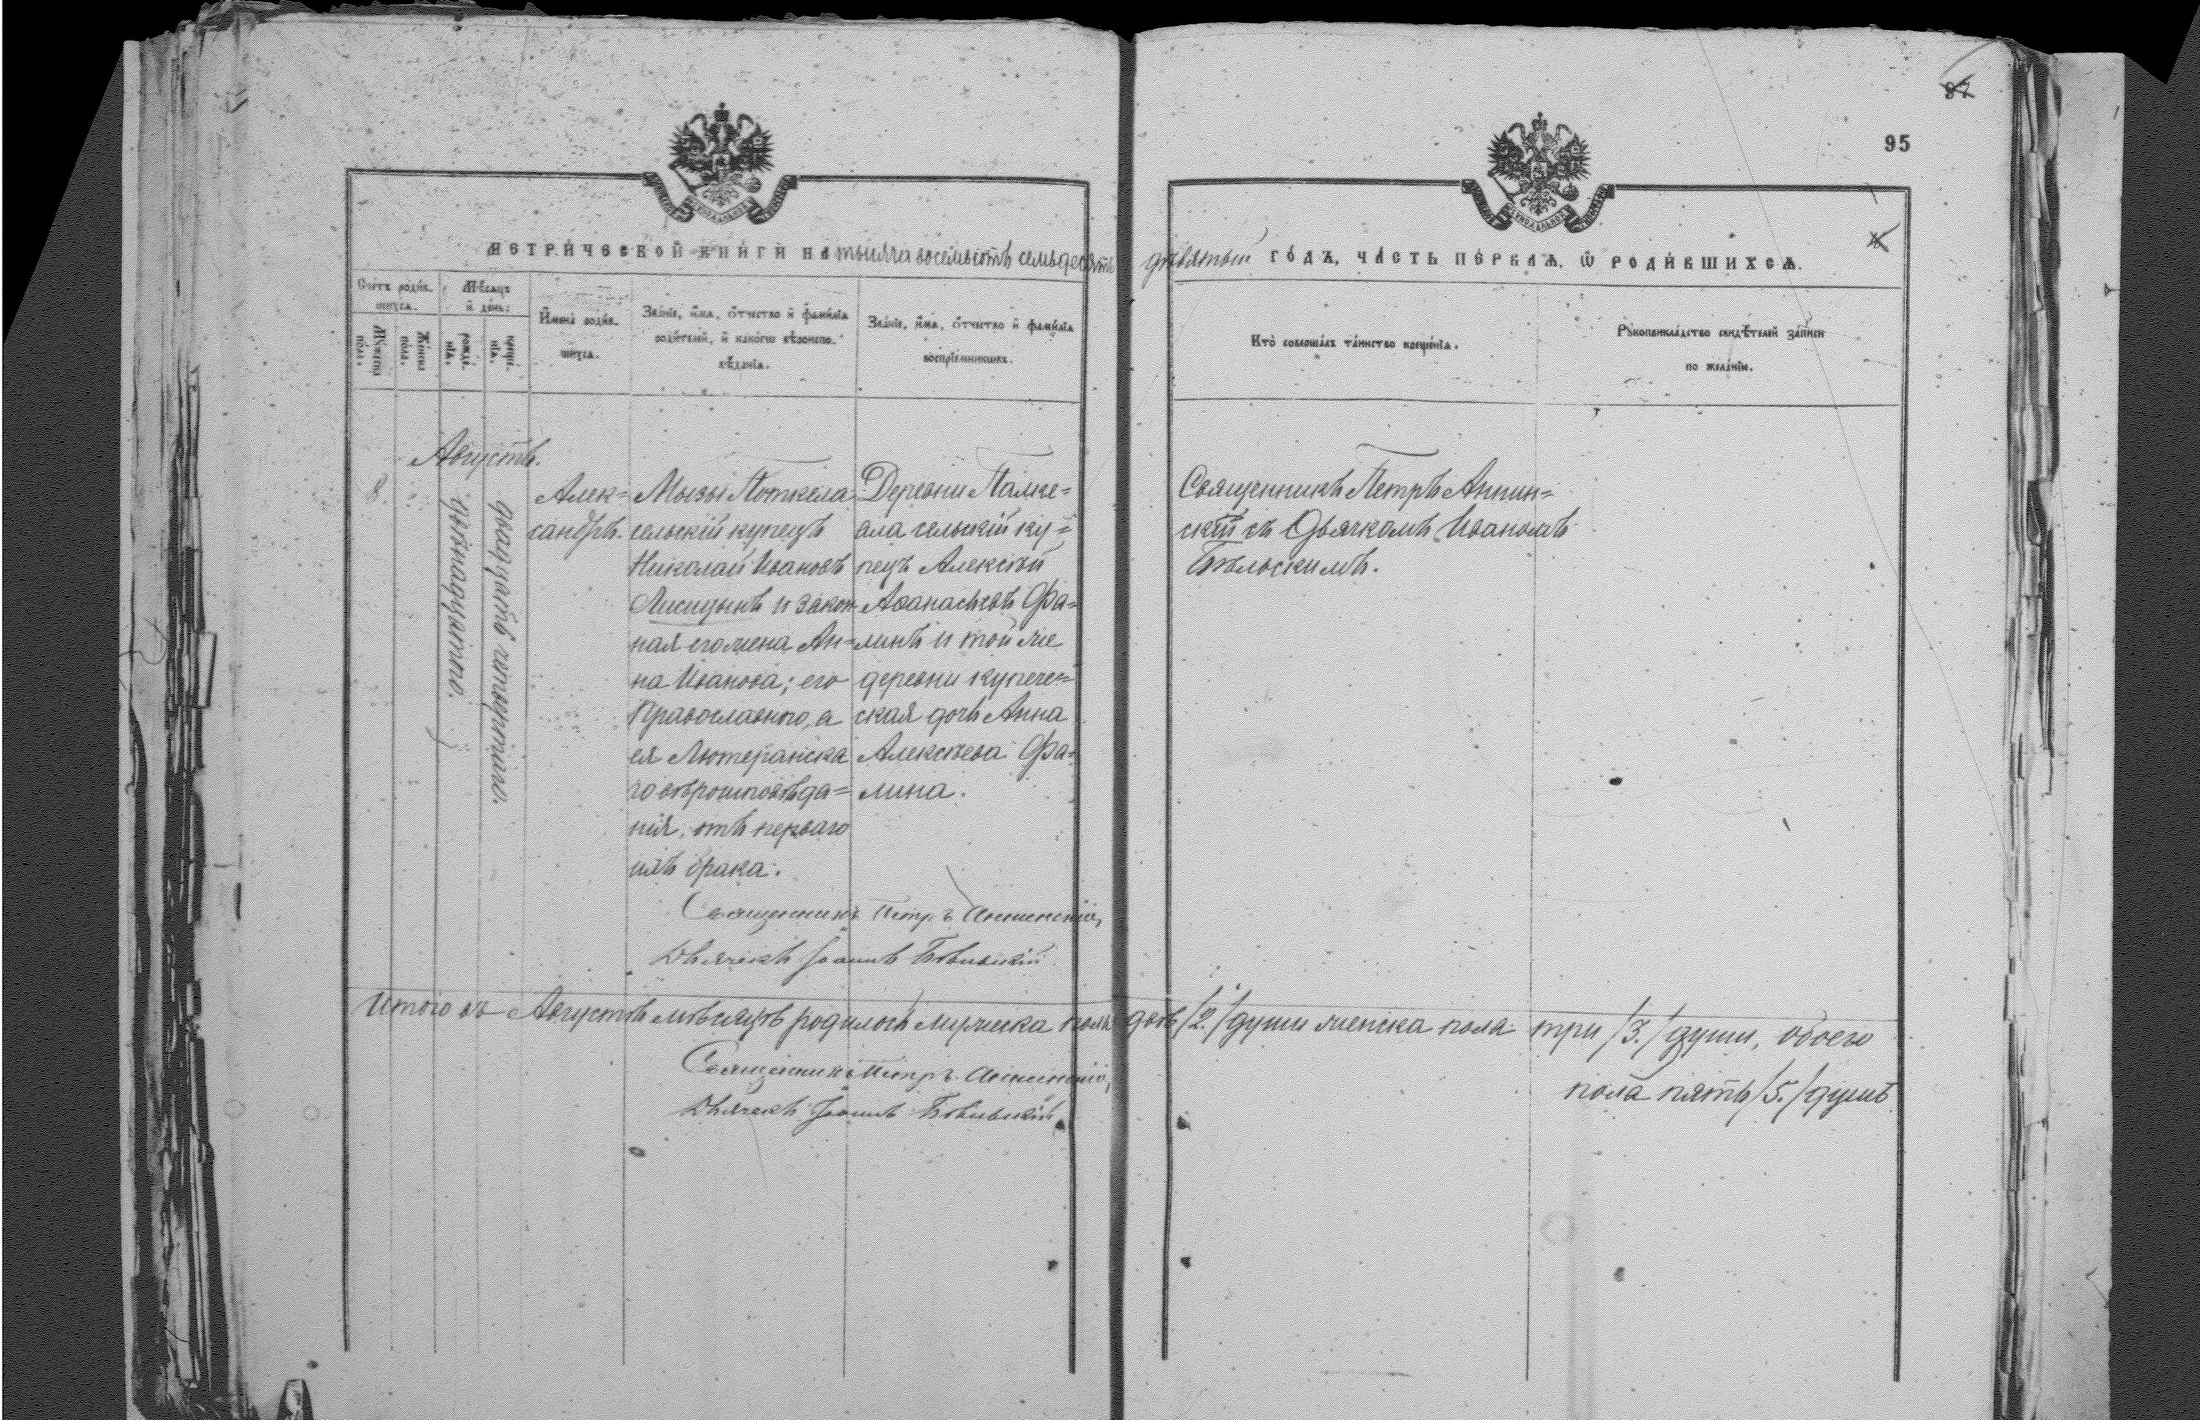 87
95
МЕТРИЧЕСКОЙ КНИГИ НА тысяча восемьсотъ семьдесятъ девятый ГОДЪ, ЧАСТЬ ПЕРВАЯ, Ѡ РОДИВШИХСЯ.
Счетъ родив-
шихся.
Мѣсяцъ
и день:
Мужеска
пола.
Женска
пола.
рожде-
нія.
креще-
нія.
Имена родив-
шихся.
Званіе, имя, отчество и фамилія
родителей, и какого вѣроиспо-
вѣданія.
Званіе, имя, отчество и фамилія
воспріемниковъ.
Кто совершалъ таинство крещенія.
Рукоприкладство свидѣтелей записи
по желанію.
Августъ.
8.
двѣнадцатого.
двадцать четвертаго.
Алек=
сандръ.
Мызы Поткела
сельскій купецъ
Николай Ивановъ
Лисицынъ и закон
ная его жена Ан=
на Иванова; его
Православного, а
ея Лютеранска
го вѣроисповѣда=
нія, отъ перваго
ихъ брака.
Деревни Палке=
ала сельскій ку=
пецъ Алексѣй
Аѳанасьевъ Фа=
линъ и той же
деревни купече=
ская дочь Анна
Алексѣева Фа=
лина.
Священникъ Петръ Аннин=
скій съ Дьячкомъ Иваномъ
Бѣльскимъ.
Священникъ Петръ Аннинскій,
Дьячекъ Іоаннъ Бѣльскій
Итого въ Августѣ мѣсяцѣ родилось мужеска пола двѣ /2./ души женска пола три /3./ души, обоего
пола пять /5./ душъ
Священникъ Петръ Аннинскій,
Дьячекъ Іоаннъ Бѣльскій